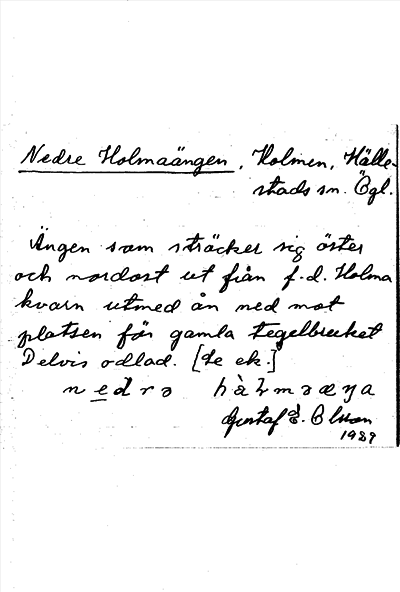 Nedre Holmaängen, Holmen, Hälle-
stads sn. Ögl.
Ängen som sträcker sig öster
och nordost ut från f.d. Holma
kvarn utmed ån ned mot
platsen för gamla tegelbruket
Delvis odlad. [Se ek.]
Gustaf E. Olsson
1989